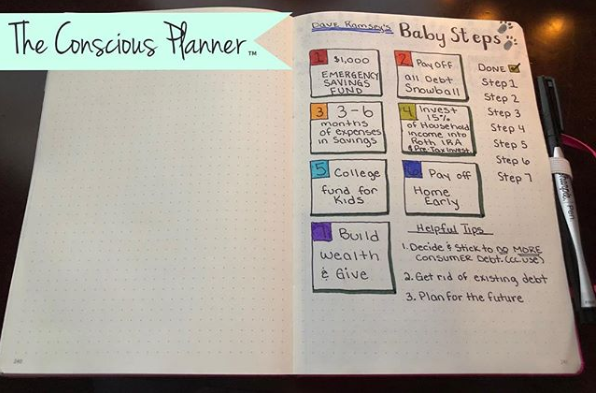 The Conscious Planner™
Dave Ramsey's Baby Steps
1 $1,000
EMERGENCY
SAVINGS
FUND
2 Pay OFF
all Debt
Snowball
3 3-6
months
of expenses
in Savings
4 Invest
15%
of Household
income into
Roth IRA
& Pre-Tax Invest.
5 College
fund for
Kids
6 Pay off
Home
Early
7 Build
wealth
& Give
DONE
Step 1
Step 2
Step 3
Step 4
Step 5
Step 6
Step 7
Helpful Tips
1. Decide & Stick to DO MORE
Consumer Debt. (CC USE)
2. Get rid of existing debt
3. Plan for the future
240